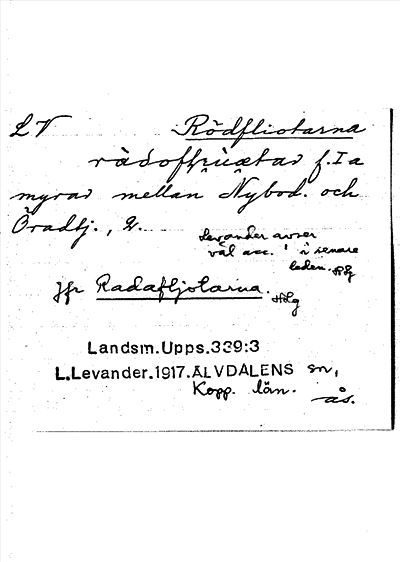 LV Rödfliotarna
f. I a
myrar mellan Nybod. och
Öradtj., 2.
Levander avser
väl acc. ' i senare
leden. Hlg
Jfr Radafljotarna.
Hlg
Landsm. Upps. 339:3
L. Levander. 1917. ÄLVDALENS sn,
Kopp. län.
ås.